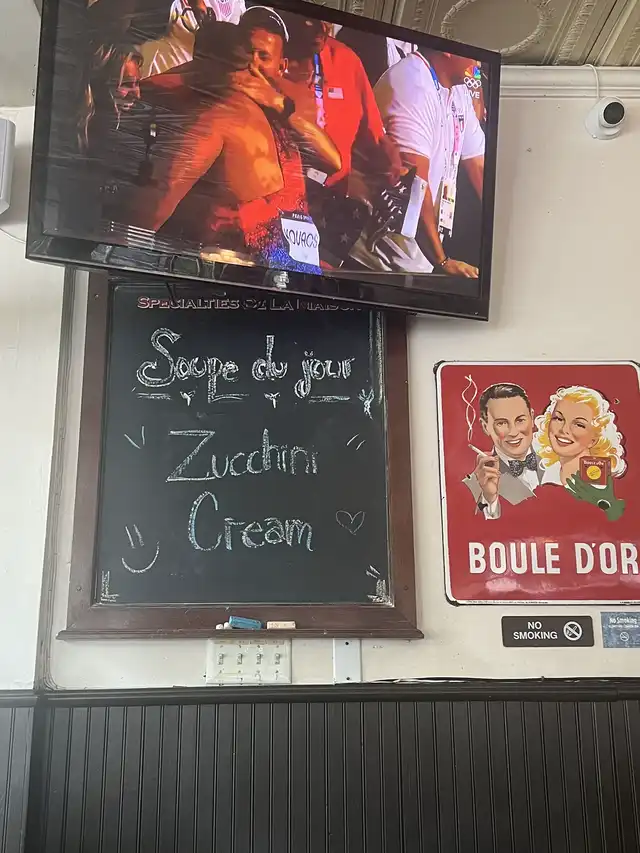 LIVE
SPECIALTIES DE LA MAISON
Soupe du jour
Zucchini
Cream
BOULE D'OR
NO
SMOKING
No Smoking